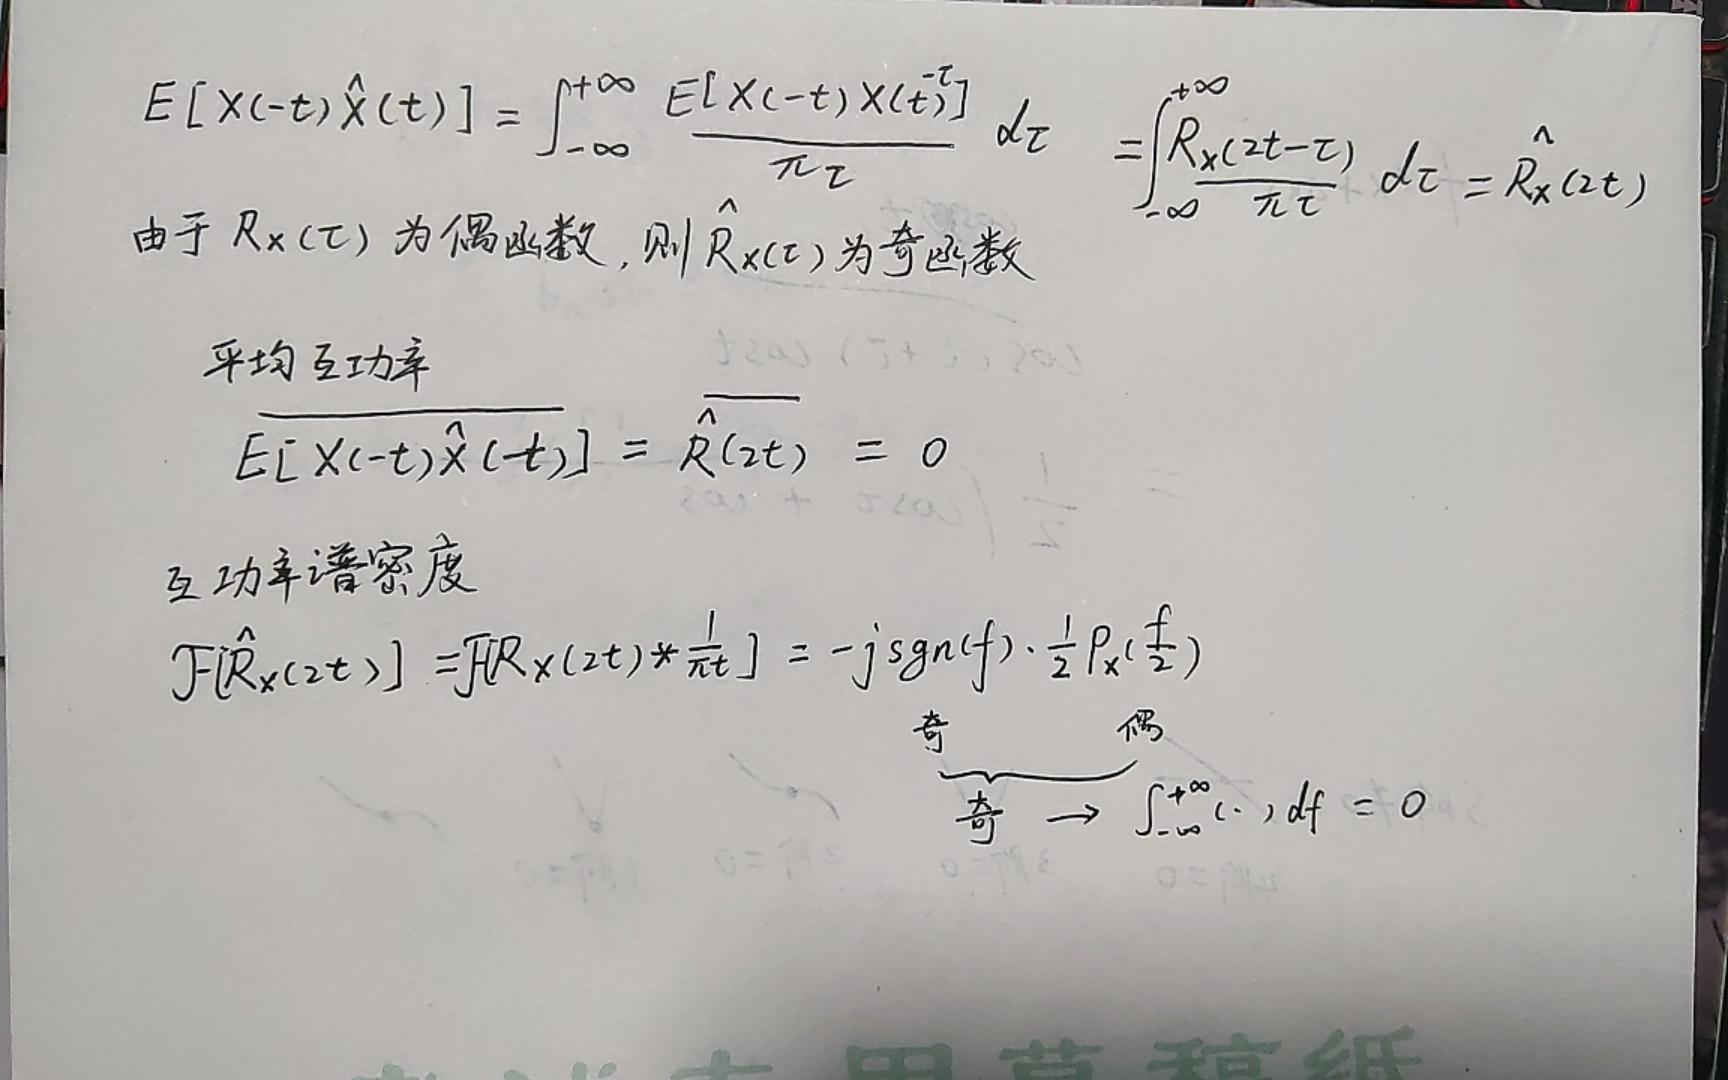 E[X(-t)X̂(t)] = ∫_{-∞}^{+∞} E[X(-t)X(t-τ)] / πτ dτ = ∫_{-∞}^{+∞} R_X(2t-τ) / πτ dτ = R̂_X(2t)
由于 R_X(τ) 为偶函数, 则 R̂_X(τ) 为奇函数
平均互功率
\overline{E[X(-t)X̂(-t)]} = \overline{R̂(2t)} = 0
互功率谱密度
F[R̂_X(2t)] = F[R_X(2t) * 1/πt] = -j sgn(f) · 1/2 P_X(f/2)
奇 偶
奇 → ∫_{-∞}^{+∞} (·) df = 0
草稿纸